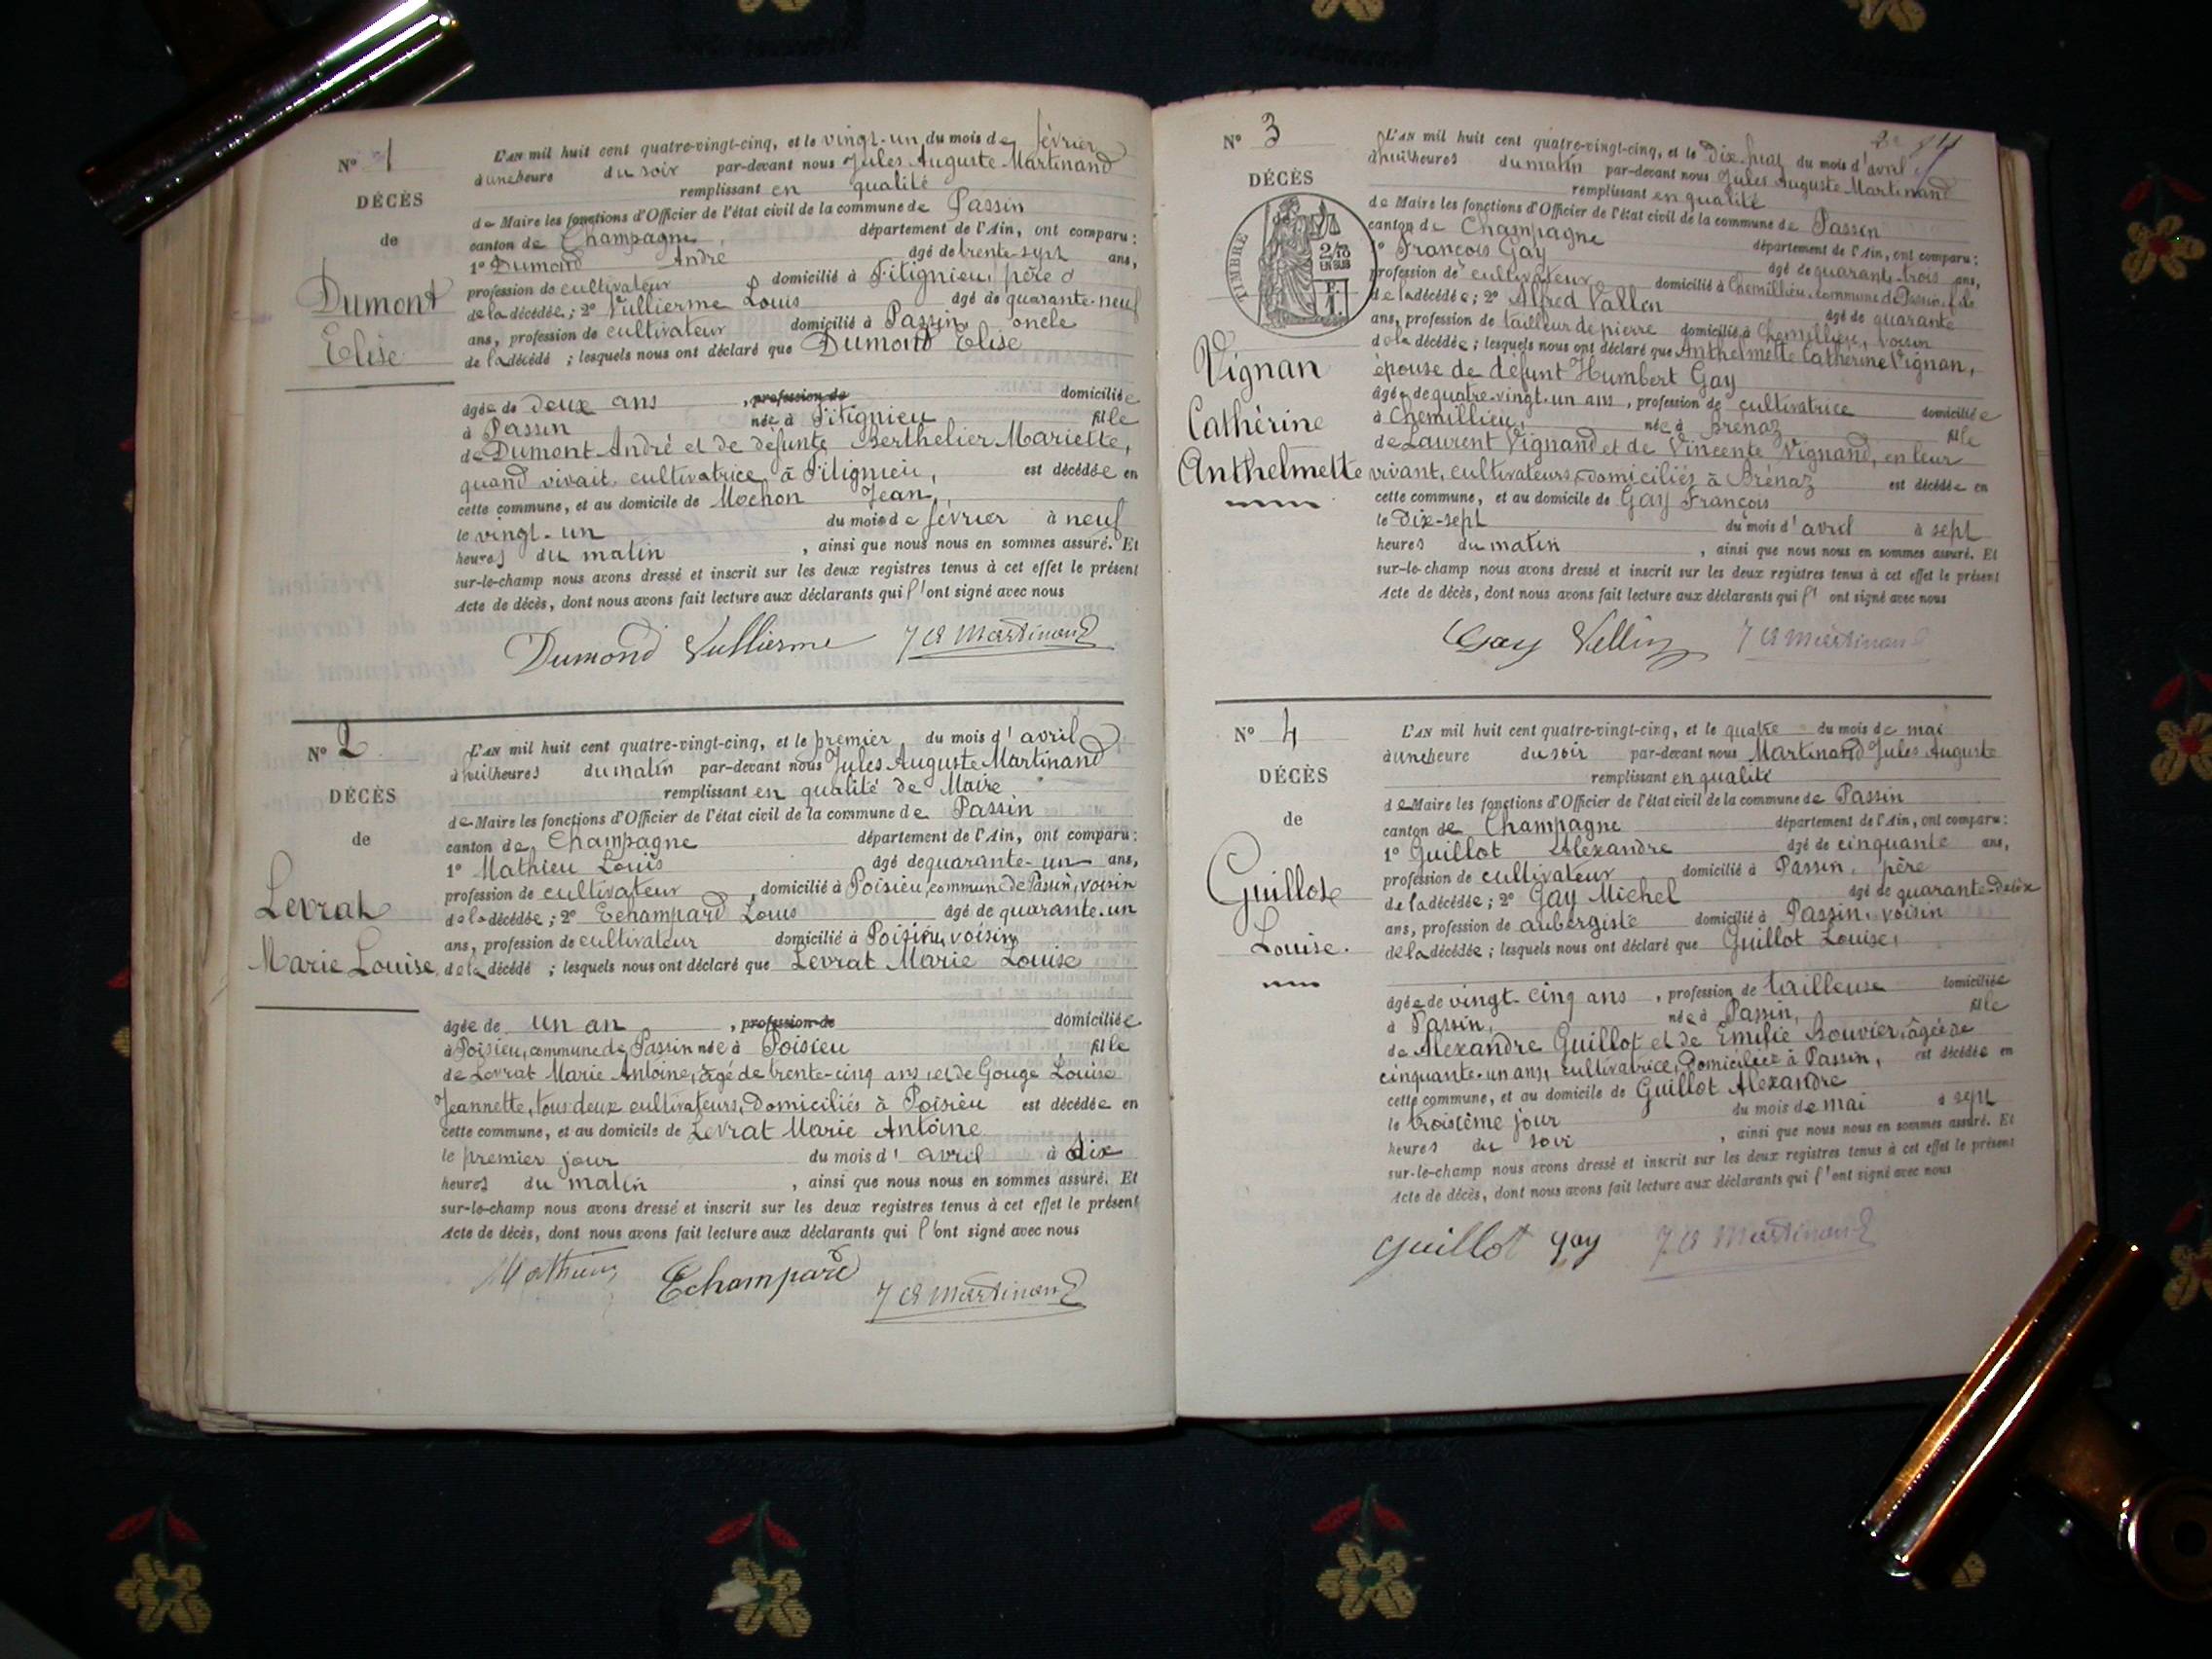 N° 1
DÉCÈS
de
Dumont
Elise
L'AN mil huit cent quatre-vingt-cinq, et le vingt-un du mois de février
à une heure du soir par-devant nous Jules Auguste Martinand
remplissant en qualité
de Maire les fonctions d'Officier de l'état civil de la commune de Passin
canton de Champagne, département de l'Ain, ont comparu :
1° Dumond André âgé de trente-sept ans,
profession de cultivateur domicilié à Fitignieu, père
de la décédée ; 2° Vullierme Louis âgé de quarante-neuf
ans, profession de cultivateur domicilié à Passin, oncle
de la décédé ; lesquels nous ont déclaré que Dumond Elise
âgée de deux ans , profession de domiciliée
à Passin née à Fitignieu fille
de Dumont André et de défunte Berthelier Mariette,
quand vivait cultivatrice à Fitignieu, est décédée en
cette commune, et au domicile de Mochon Jean,
le vingt-un du mois de février à neuf
heures du matin , ainsi que nous nous en sommes assuré. Et
sur-le-champ nous avons dressé et inscrit sur les deux registres tenus à cet effet le présent
Acte de décès, dont nous avons fait lecture aux déclarants qui l'ont signé avec nous
Dumond Vullierme J A Martinand
N° 2
DÉCÈS
de
Levrat
Marie Louise
L'AN mil huit cent quatre-vingt-cinq, et le premier du mois d'avril
à huit heures du matin par-devant nous Jules Auguste Martinand
remplissant en qualité de Maire
de Maire les fonctions d'Officier de l'état civil de la commune de Passin
canton de Champagne département de l'Ain, ont comparu :
1° Mathieu Louis âgé de quarante-un ans,
profession de cultivateur, domicilié à Poisieu, commune de Passin, voisin
de la décédée ; 2° Echampard Louis âgé de quarante-un
ans, profession de cultivateur domicilié à Poisieu, voisin
de la décédé ; lesquels nous ont déclaré que Levrat Marie Louise
âgée de un an , profession de domiciliée
à Poisieu, commune de Passin née à Poisieu fille
de Levrat Marie Antoine, âgé de trente-cinq ans, et de Gouge Louise
Jeannette, tous deux cultivateurs, domiciliés à Poisieu est décédée en
cette commune, et au domicile de Levrat Marie Antoine
le premier jour du mois d'avril à dix
heures du matin , ainsi que nous nous en sommes assuré. Et
sur-le-champ nous avons dressé et inscrit sur les deux registres tenus à cet effet le présent
Acte de décès, dont nous avons fait lecture aux déclarants qui l'ont signé avec nous
Mathieu Echampard J A Martinand
N° 3
DÉCÈS
TIMBRE
Vignan
Cathérine
Anthelmette
L'AN mil huit cent quatre-vingt-cinq, et le dix-huit du mois d'avril
à huit heures du matin par-devant nous Jules Auguste Martinand
remplissant en qualité
de Maire les fonctions d'Officier de l'état civil de la commune de Passin
canton de Champagne département de l'Ain, ont comparu :
1° François Gay âgé de quarante-trois ans,
profession de cultivateur domicilié à Chemillieu, commune de Passin, fils
de la décédée ; 2° Alfred Vallin âgé de quarante
ans, profession de tailleur de pierre domicilié à Chemillieu, voisin
de la décédée ; lesquels nous ont déclaré que Anthelmette Catherine Vignan,
épouse de défunt Humbert Gay
âgée de quatre-vingt-un ans, profession de cultivatrice domiciliée
à Chemillieu, née à Brénaz fille
de Laurent Vignand et de Vincente Vignand, en leur
vivant, cultivateurs, domiciliés à Brénaz est décédée en
cette commune, et au domicile de Gay François
le dix-sept du mois d'avril à sept
heures du matin , ainsi que nous nous en sommes assuré. Et
sur-le-champ nous avons dressé et inscrit sur les deux registres tenus à cet effet le présent
Acte de décès, dont nous avons fait lecture aux déclarants qui l'ont signé avec nous
Gay Vallin J A Martinand
N° 4
DÉCÈS
de
Guillot
Louise.
L'AN mil huit cent quatre-vingt-cinq, et le quatre du mois de mai
à une heure du soir par-devant nous Martinand Jules Auguste
remplissant en qualité
de Maire les fonctions d'Officier de l'état civil de la commune de Passin
canton de Champagne département de l'Ain, ont comparu :
1° Guillot Alexandre âgé de cinquante ans,
profession de cultivateur domicilié à Passin, père
de la décédée ; 2° Gay Michel âgé de quarante-deux
ans, profession de aubergiste domicilié à Passin, voisin
de la décédée ; lesquels nous ont déclaré que Guillot Louise,
âgée de vingt-cinq ans , profession de tailleuse domiciliée
à Passin, née à Passin, fille
de Alexandre Guillot et de Emilie Bouvier, âgée de
cinquante-un ans, cultivatrice, domiciliée à Passin, est décédée en
cette commune, et au domicile de Guillot Alexandre
le troisième jour du mois de mai à sept
heures du soir , ainsi que nous nous en sommes assuré. Et
sur-le-champ nous avons dressé et inscrit sur les deux registres tenus à cet effet le présent
Acte de décès, dont nous avons fait lecture aux déclarants qui l'ont signé avec nous
Guillot Gay J A Martinand